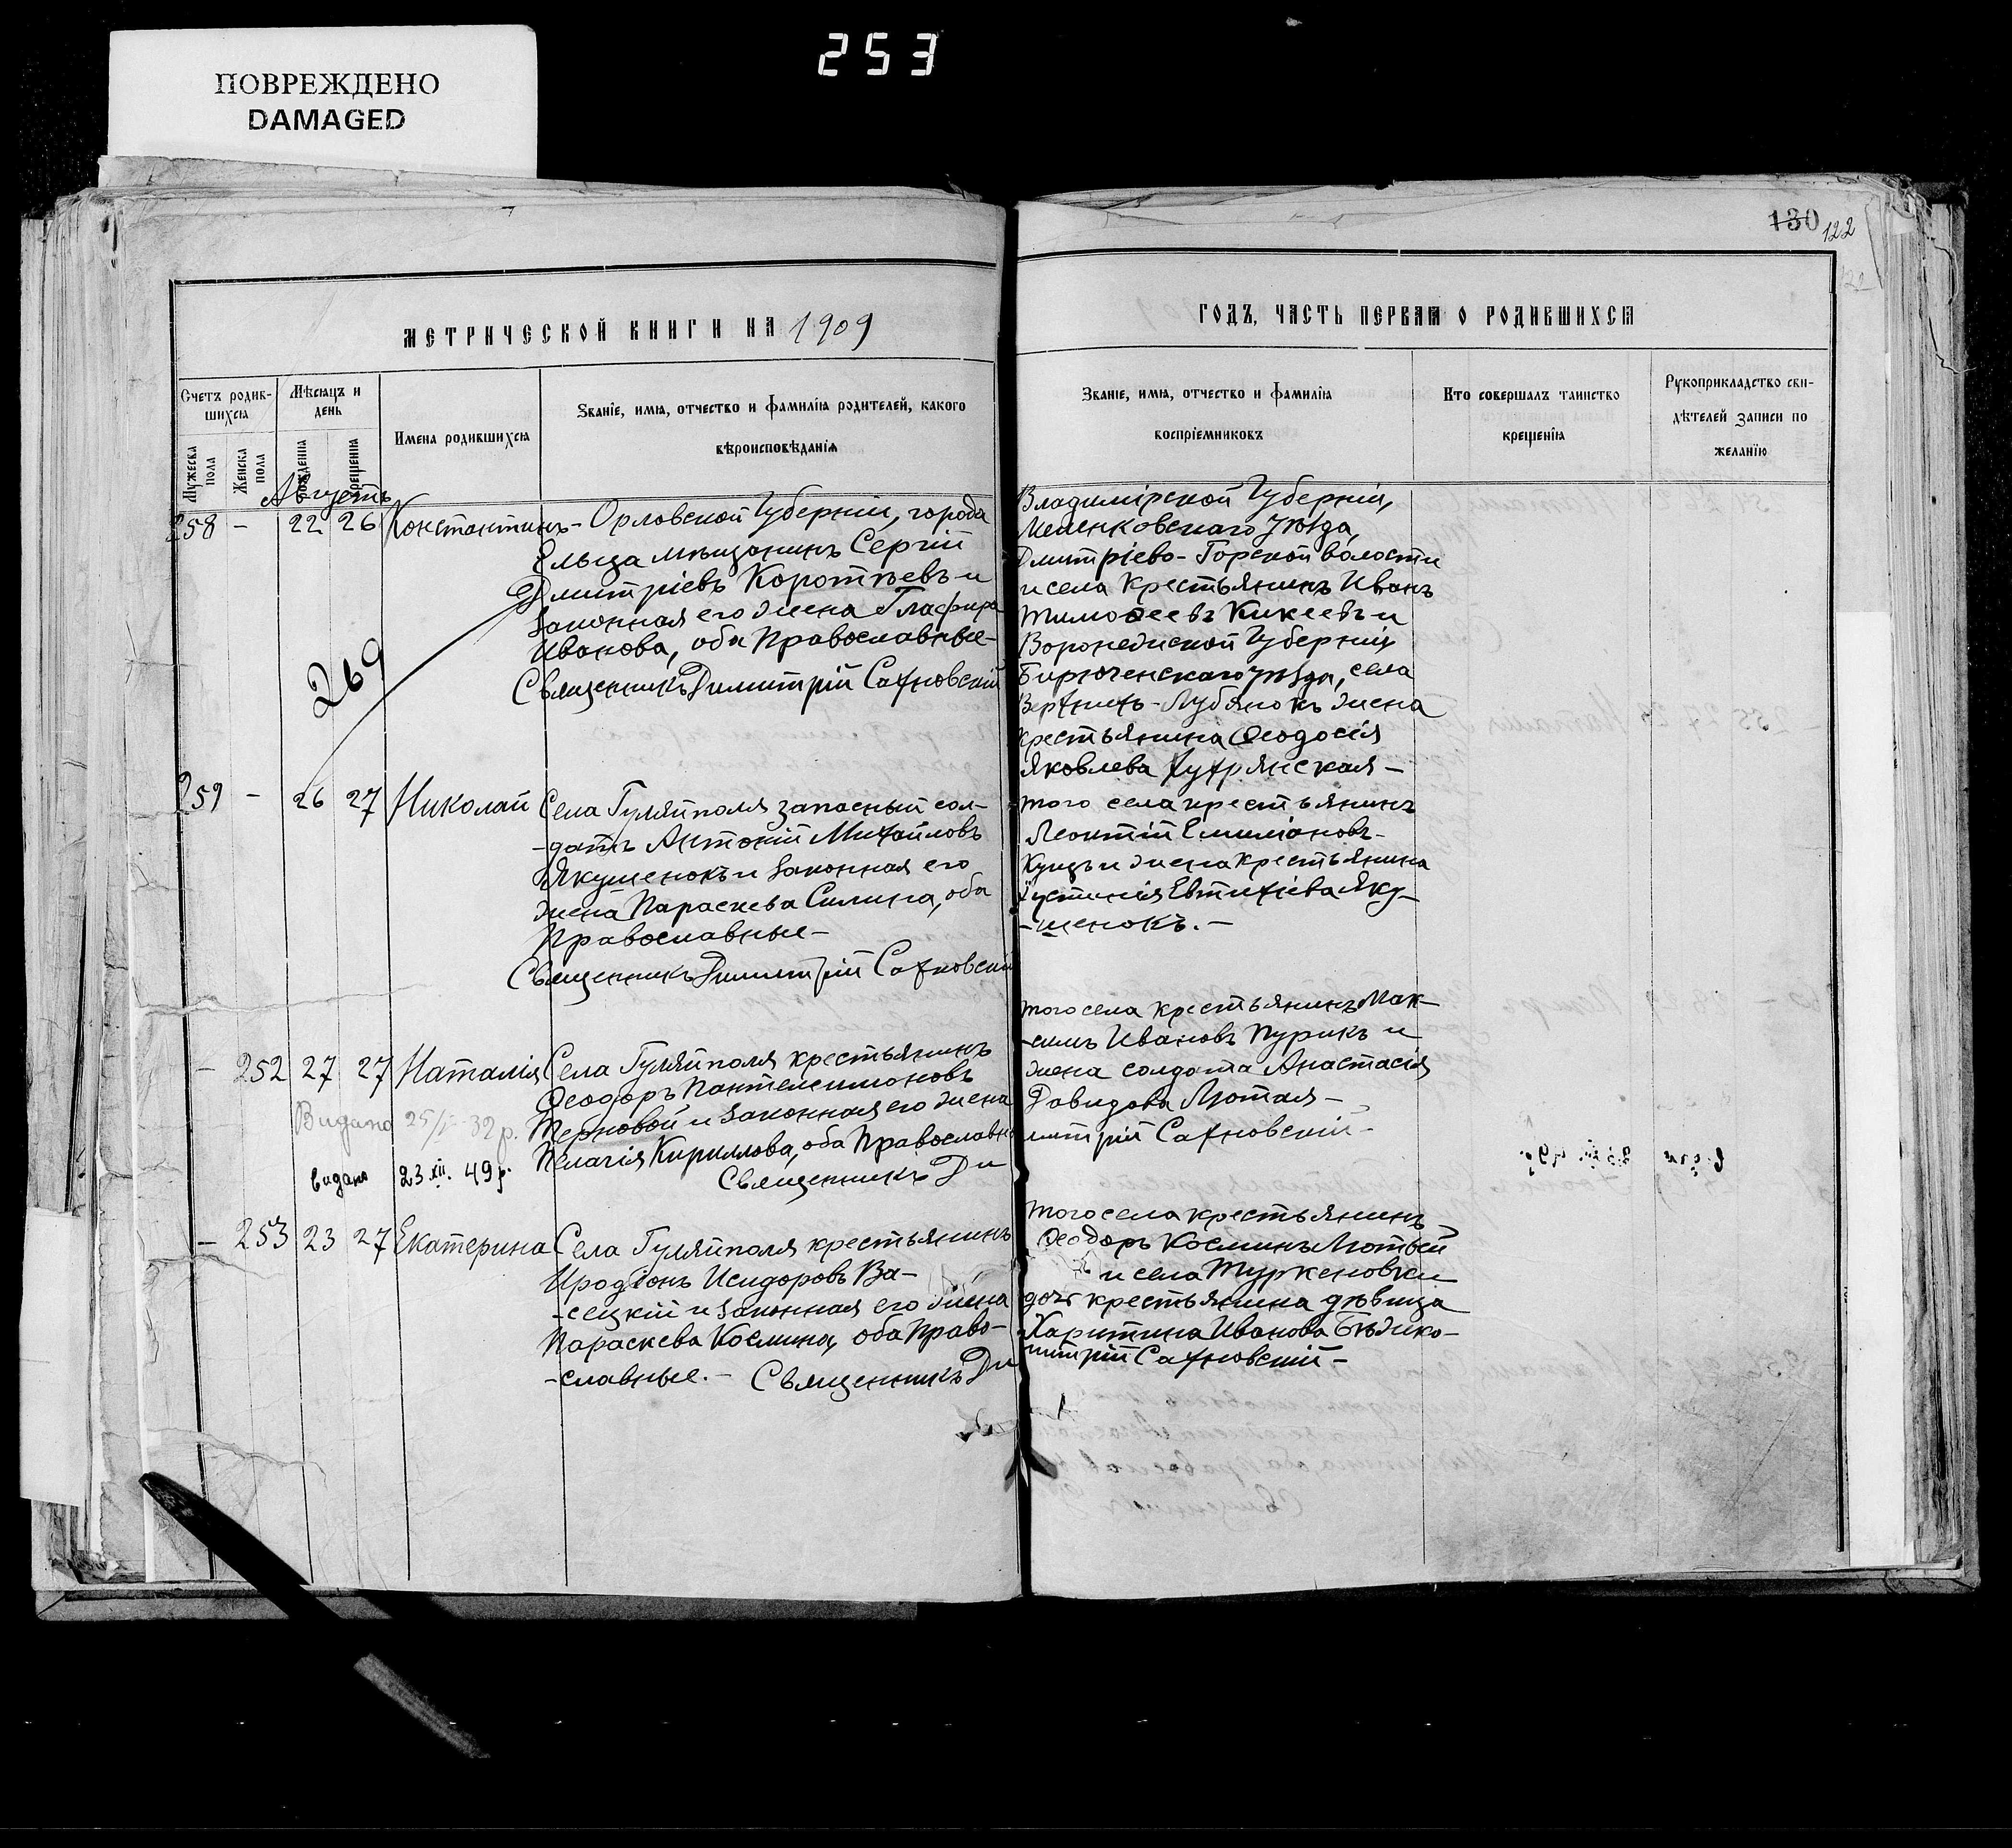 253
ПОВРЕЖДЕНО
DAMAGED
130 122
МЕТРИЧЕСКОЙ КНИГИ НА 1909
Счетъ родив-
шихся
Мѣсяцъ и
день
Мужеска
пола
Женска
пола
рожденія
крещенія
Имена родившихся
Званіе, имя, отчество и фамилія родителей, какого
вѣроисповѣданія
Августъ
258 - 22 26 Константинъ - Орловской Губерніи, города
Ельца мѣщанинъ Сергій
Дмитріевъ Коротѣевъ и
законная его жена Глафира
Иванова, оба Православные -
Священникъ Димитрій Сахновскій
269
259 - 26 27 Николай Села Гуляйполя запасный сол-
-датъ Антоній Михайловъ
Якушенокъ и законная его
жена Параскева Силина, оба
Православные -
Священникъ Димитрій Сахновскій
- 252 27 27 Наталія Села Гуляйполя крестьянинъ
Ѳеодоръ Пантелеимоновъ
Терновой и законная его жена
Пелагія Кириллова, оба Православн
Священникъ Ди
Видано 25/ 32 р.
видано 23.XII. 49 р.
- 253 23 27 Екатерина Села Гуляйполя крестьянинъ
Иродіонъ Исидоровъ Ва-
-сецкій и законная его жена
Параскева Космина, оба Право-
-славные. - Священникъ Ди
ГОДЪ, ЧАСТЬ ПЕРВАЯ О РОДИВШИХСЯ
Званіе, имя, отчество и фамилія
воспріемниковъ
Кто совершалъ таинство
крещенія
Рукоприкладство сви-
дѣтелей записи по
желанію
Владимірской Губерніи,
Меленковскаго уѣзда,
Дмитріево-Горской волости
и села крестьянинъ Иванъ
Тимоѳеевъ Кикеевъ и
Воронежской Губерніи
Бирюченскаго уѣзда, села
Верхнихъ-Лубянокъ жена
крестьянина Ѳеодосія
Яковлева Хухрянская -
того села крестьянинъ
Леонтій Емиліановъ
Куцъ и жена крестьянина
Іустинія Евтихіева Яку-
-шенокъ. -
того села крестьянинъ Мак-
-симъ Ивановъ Пурикъ и
жена солдата Анастасія
Давидова Лютая -
митрій Сахновскій -
того села крестьянинъ
Ѳеодоръ Косминъ Лютый
и села Туркеновки
дочь крестьянина дѣвица
Харитина Иванова Бѣжко -
митрій Сахновскій -